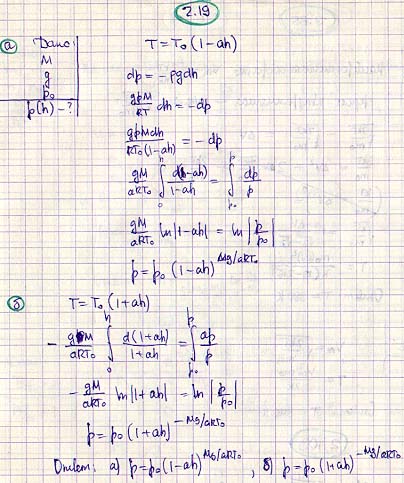 2.19
а) Дано:
M
g
p₀
p(h) - ?
T = T₀ (1-ah)
dp = -ρgdh
gpM/RT dh = -dp
gpMdh/RT₀(1-ah) = -dp
gM/aRT₀ ∫₀ʰ d(1-ah)/1-ah = ∫ₚ₀ᵖ dp/p
gM/aRT₀ ln|1-ah| = ln|p/p₀|
p = p₀ (1-ah)^Mg/aRT₀
б) T = T₀ (1+ah)
- gM/aRT₀ ∫₀ʰ d(1+ah)/1+ah = ∫ₚ₀ᵖ dp/p
- gM/aRT₀ ln|1+ah| = ln|p/p₀|
p = p₀ (1+ah)^-Mg/aRT₀
Ответ: а) p = p₀(1-ah)^Mg/aRT₀, б) p = p₀(1+ah)^-Mg/aRT₀